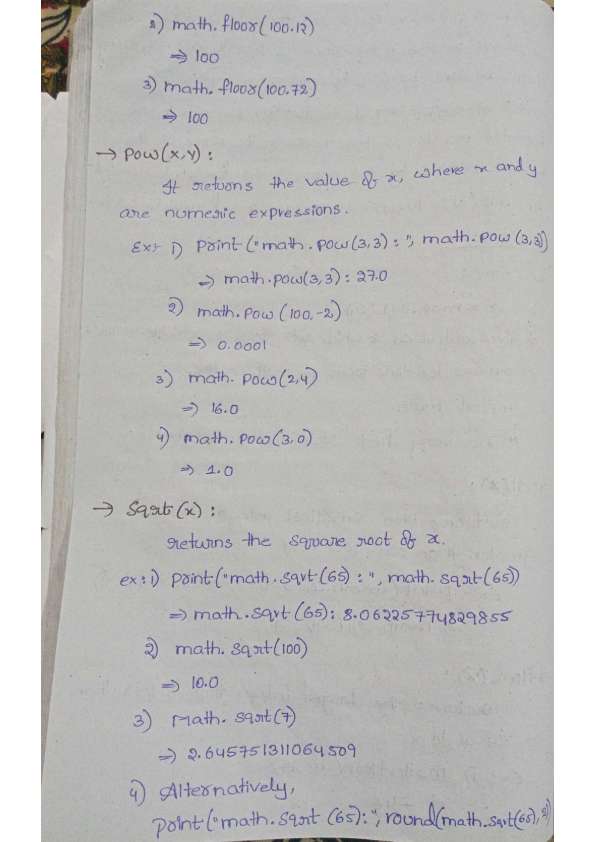 2) math.floor(100.12)
⇒ 100
3) math.floor(100.72)
⇒ 100
→ pow(x,y):
It retuons the value of x, where x and y
are numeric expressions.
Ex:- 1) print("math.pow(3,3):", math.pow(3,3))
⇒ math.pow(3,3): 27.0
2) math.pow(100,-2)
⇒ 0.0001
3) math.pow(2,4)
⇒ 16.0
4) math.pow(3,0)
⇒ 1.0
→ Sqrt(x):
returns the square root of x.
ex:1) print("math.sqrt(65):", math.sqrt(65))
⇒ math.sqrt(65): 8.06225774829855
2) math.sqrt(100)
⇒ 10.0
3) Math.sqrt(7)
⇒ 2.645751311064509
4) Alternatively,
print("math.sqrt(65):", round(math.sqrt(65),2)